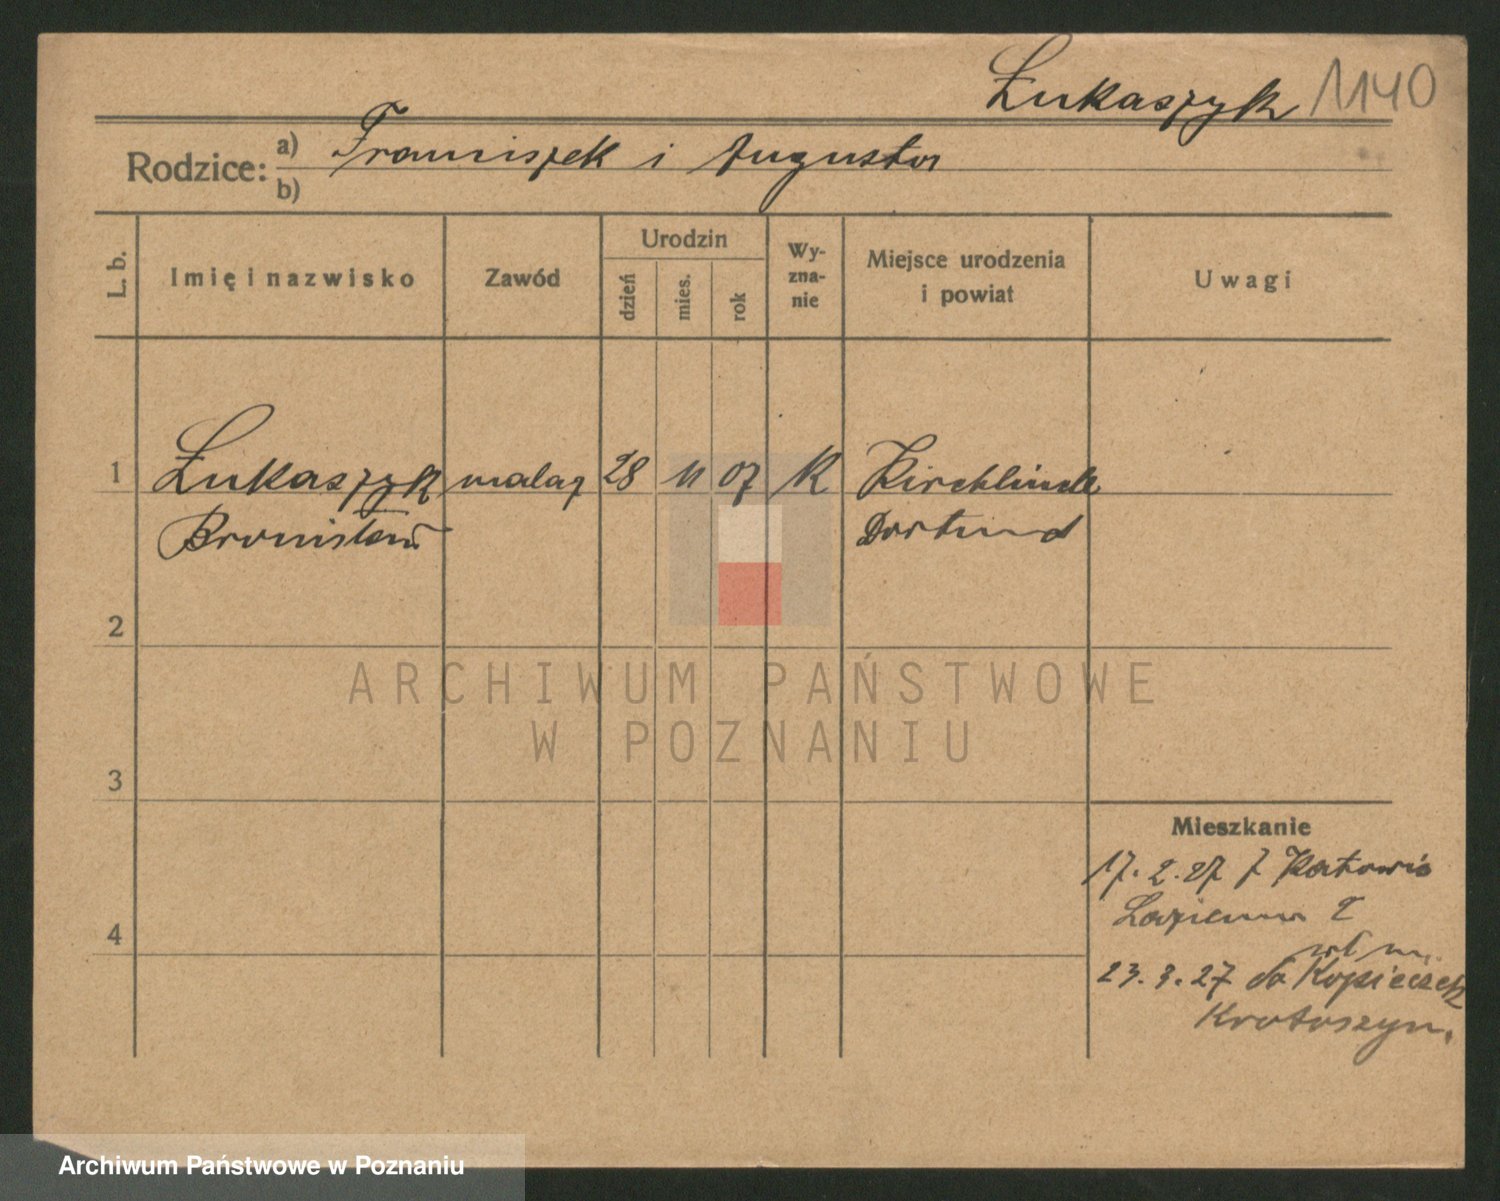 Łukaszyk 1140
Rodzice: a) Franciszek i Augusta
b)
L. b.
Imię i nazwisko
Zawód
Urodzin
dzień
mies.
rok
Wy-
zna-
nie
Miejsce urodzenia
i powiat
Uwagi
1 Łukaszyk malarz 28 11 07 K Kirchlinde
Bronisław Dortmund
2
ARCHIWUM PAŃSTWOWE
W POZNANIU
3
Mieszkanie
17. 2. 27 z Katowic
4
23. 3. 27 do Kopieczek
Krotoszyn.
Archiwum Państwowe w Poznaniu